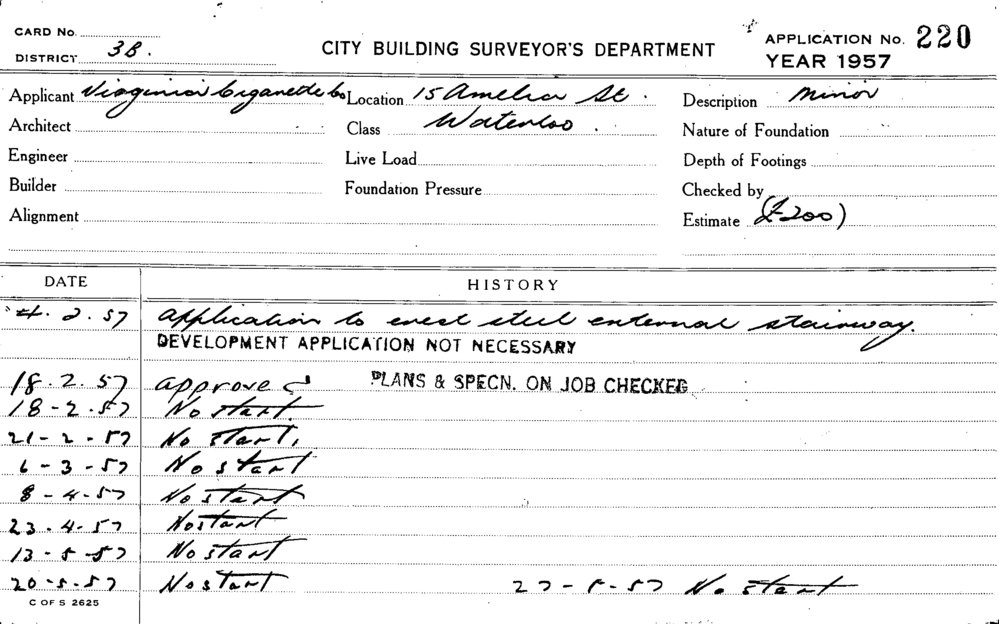 CARD No.
DISTRICT 3B.
CITY BUILDING SURVEYOR'S DEPARTMENT
APPLICATION No. 220
YEAR 1957
Applicant Virginia Cigarette Co Location 15 Amelia St. Description Minor
Architect Class Waterloo. Nature of Foundation
Engineer Live Load Depth of Footings
Builder Foundation Pressure Checked by
Alignment Estimate (£200)
DATE HISTORY
4.2.57 Application to erect steel external stairway.
DEVELOPMENT APPLICATION NOT NECESSARY
18.2.57 Approved PLANS & SPECN. ON JOB CHECKED
18-2-57 No start.
21-2-57 No start.
6-3-57 No start
8-4-57 No start
23.4.57 No start
13-5-57 No start
20-5-57 No start 27-5-57 No start
C OF S 2625